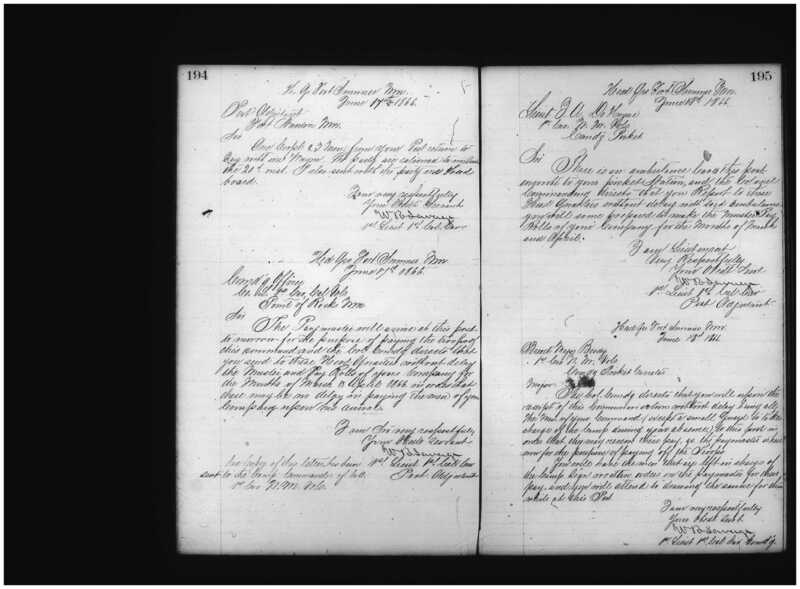 194
Hd Qrs Fort Sumner N.M.
June 17th 1866
Post Adjutant
Fort Stanton N.M.
Sir
One Corpl & 3 men from your Post return to
day with
the 20th inst. I also send with the party
board.
I am very respectfully
Your Obdt Servant
1st Lieut 1st Cal. Cav
Hed Qrs Fort Sumner N.M.
June 17th 1866
Comd'g Officer
Co. Cav. Cal. Vols
Sir
The Paymaster will arrive at this post
to morrow for the purpose of paying the troops of
this command and the Col. Comd'g directs that
you send to these Head Quarters without delay
the Muster and Pay Rolls of your Company for
the Months of March & April 1866 in order that
there may be no delay in paying the men of your
Company upon his arrival.
I am Sir very respectfully
Your Obdt Servant
1st Lieut 1st Cal. Cav
Post Adjutant
copy of this letter has been
sent to the Comd'g
1st Cav. N.M. Vols.
195
Head Qrs Fort Sumner N.M.
June 18th 1866
Lieut
1st Cav. N. M. Vols
Comd'g Picket
Sir
There is an ambulance leaving this post
en route to your picket Station, and the Colonel
Commanding directs that you Report to these
Head Quarters without delay with said ambulance
you will come prepared to make the Muster & Pay
Rolls of your Company for the Months of March
and April.
I am Lieutenant
Very Respectfully
Your Obdt Servt
1st Lieut 1st Cal. Cav
Post Adjutant
Head Qrs Fort Sumner N.M.
June 18th 1866
Brevet Major
1st Cav N. M. Vols
Comd'g Picket
Major
The Col. Comdg directs that you will upon the
receipt of this communication without delay bring all
the men of your Command (except a small Guard to take
charge of the camp during your absence) to this post in
order that they may receive their pay, as the paymaster is here
now for the purpose of paying off the Troops
You will have the men who are left in charge of
the camp sign an order on the paymaster for their
pay and you will attend to drawing the same for them
while at this Post
I am very respectfully
Your Obdt Servt.
1st Lieut 1st Cal. Cav.